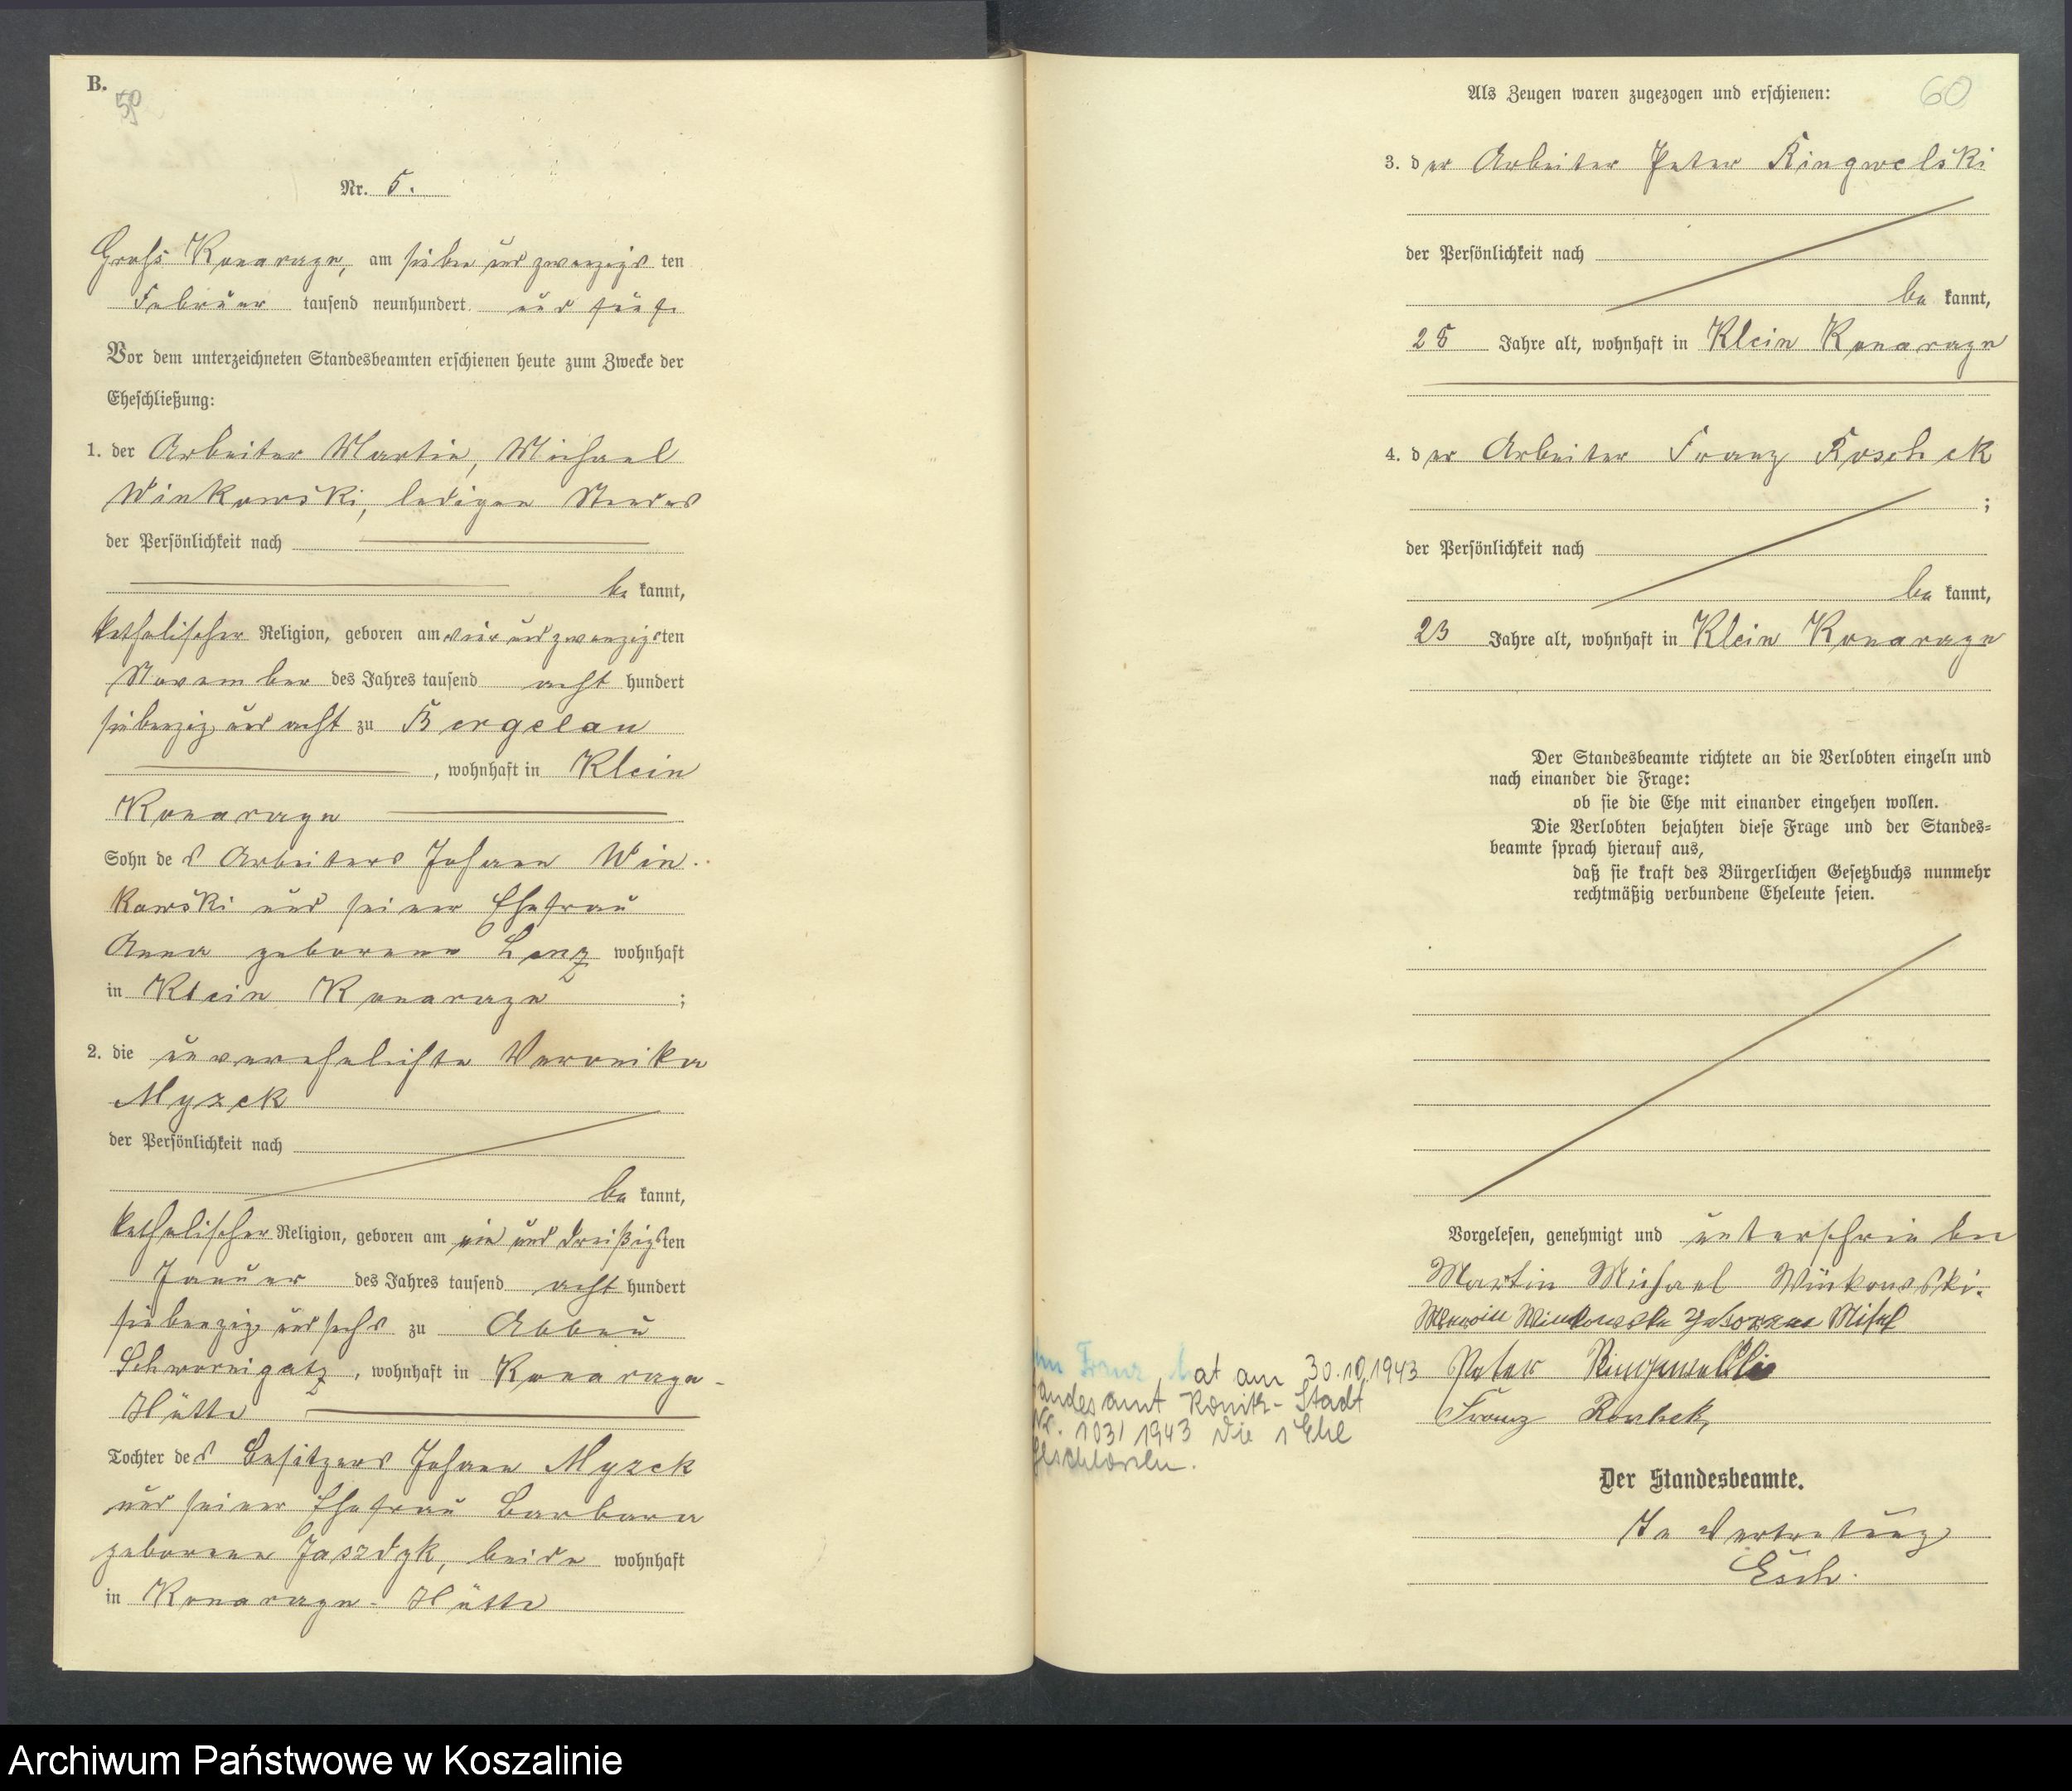 B.
59
Nr. 5.
Gross Konarzyn, am sieben und zwanzigsten
Februar tausend neunhundert und fünf.
Vor dem unterzeichneten Standesbeamten erschienen heute zum Zwecke der
Eheschließung:
1. der Arbeiter Martin, Michael
Winkowski, ledigen Standes
der Persönlichkeit nach
be kannt,
katholischer Religion, geboren am vier und zwanzigsten
November des Jahres tausend acht hundert
siebenzig und acht zu Bergelau
, wohnhaft in Klein
Konarzyn
Sohn des Arbeiters Johann Win-
kowski und seiner Ehefrau
Anna geborene Lenz wohnhaft
in Klein Konarzyn ;
2. die unverehelichte Veronika
Myzck
der Persönlichkeit nach
be kannt,
katholischer Religion, geboren am ein und dreißigsten
Januar des Jahres tausend acht hundert
siebenzig und sechs zu Abbau
Schwornigatz, wohnhaft in Konarzyn-
Hütte
Tochter des Besitzers Johann Myzck
und seiner Ehefrau Barbara
geborene Jaszdzk, beide wohnhaft
in Konarzyn-Hütte
Als Zeugen waren zugezogen und erschienen:
60
3. der Arbeiter Peter Ringwelski
der Persönlichkeit nach
be kannt,
25 Jahre alt, wohnhaft in Klein Konarzyn
4. der Arbeiter Franz Roschek
;
der Persönlichkeit nach
be kannt,
23 Jahre alt, wohnhaft in Klein Konarzyn
Der Standesbeamte richtete an die Verlobten einzeln und
nach einander die Frage:
ob sie die Ehe mit einander eingehen wollen.
Die Verlobten bejahten diese Frage und der Standes-
beamte sprach hierauf aus,
daß sie kraft des Bürgerlichen Gesetzbuchs nunmehr
rechtmäßig verbundene Eheleute seien.
Vorgelesen, genehmigt und unterschrieben
Martin Michael Winkowski.
Winkowska geborene
Peter Ringwelski
Franz
Franz hat am 30.10.1943
andesamt Konitz-Stadt
Nr. 103/1943 die 1 Ehe
geschlossen.
Der Standesbeamte.
In Vertretung
Esch.
Archiwum Państwowe w Koszalinie